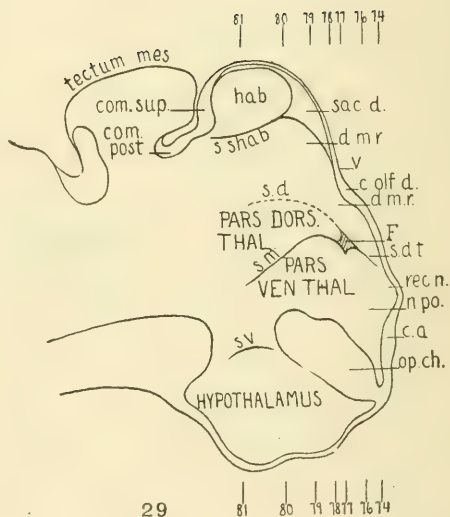 81 80 79 78 77 76 74
tectum mes
com. sup.
hab
sac d.
com.
post
s shab
d m r
v
c olf d.
d m r.
s.d
PARS DORS.
THAL.
F
s.d t
s.m
PARS
VEN THAL
rec n.
n po.
c.a
sv
op.ch.
HYPOTHALAMUS
29
81 80 79 78 77 76 74